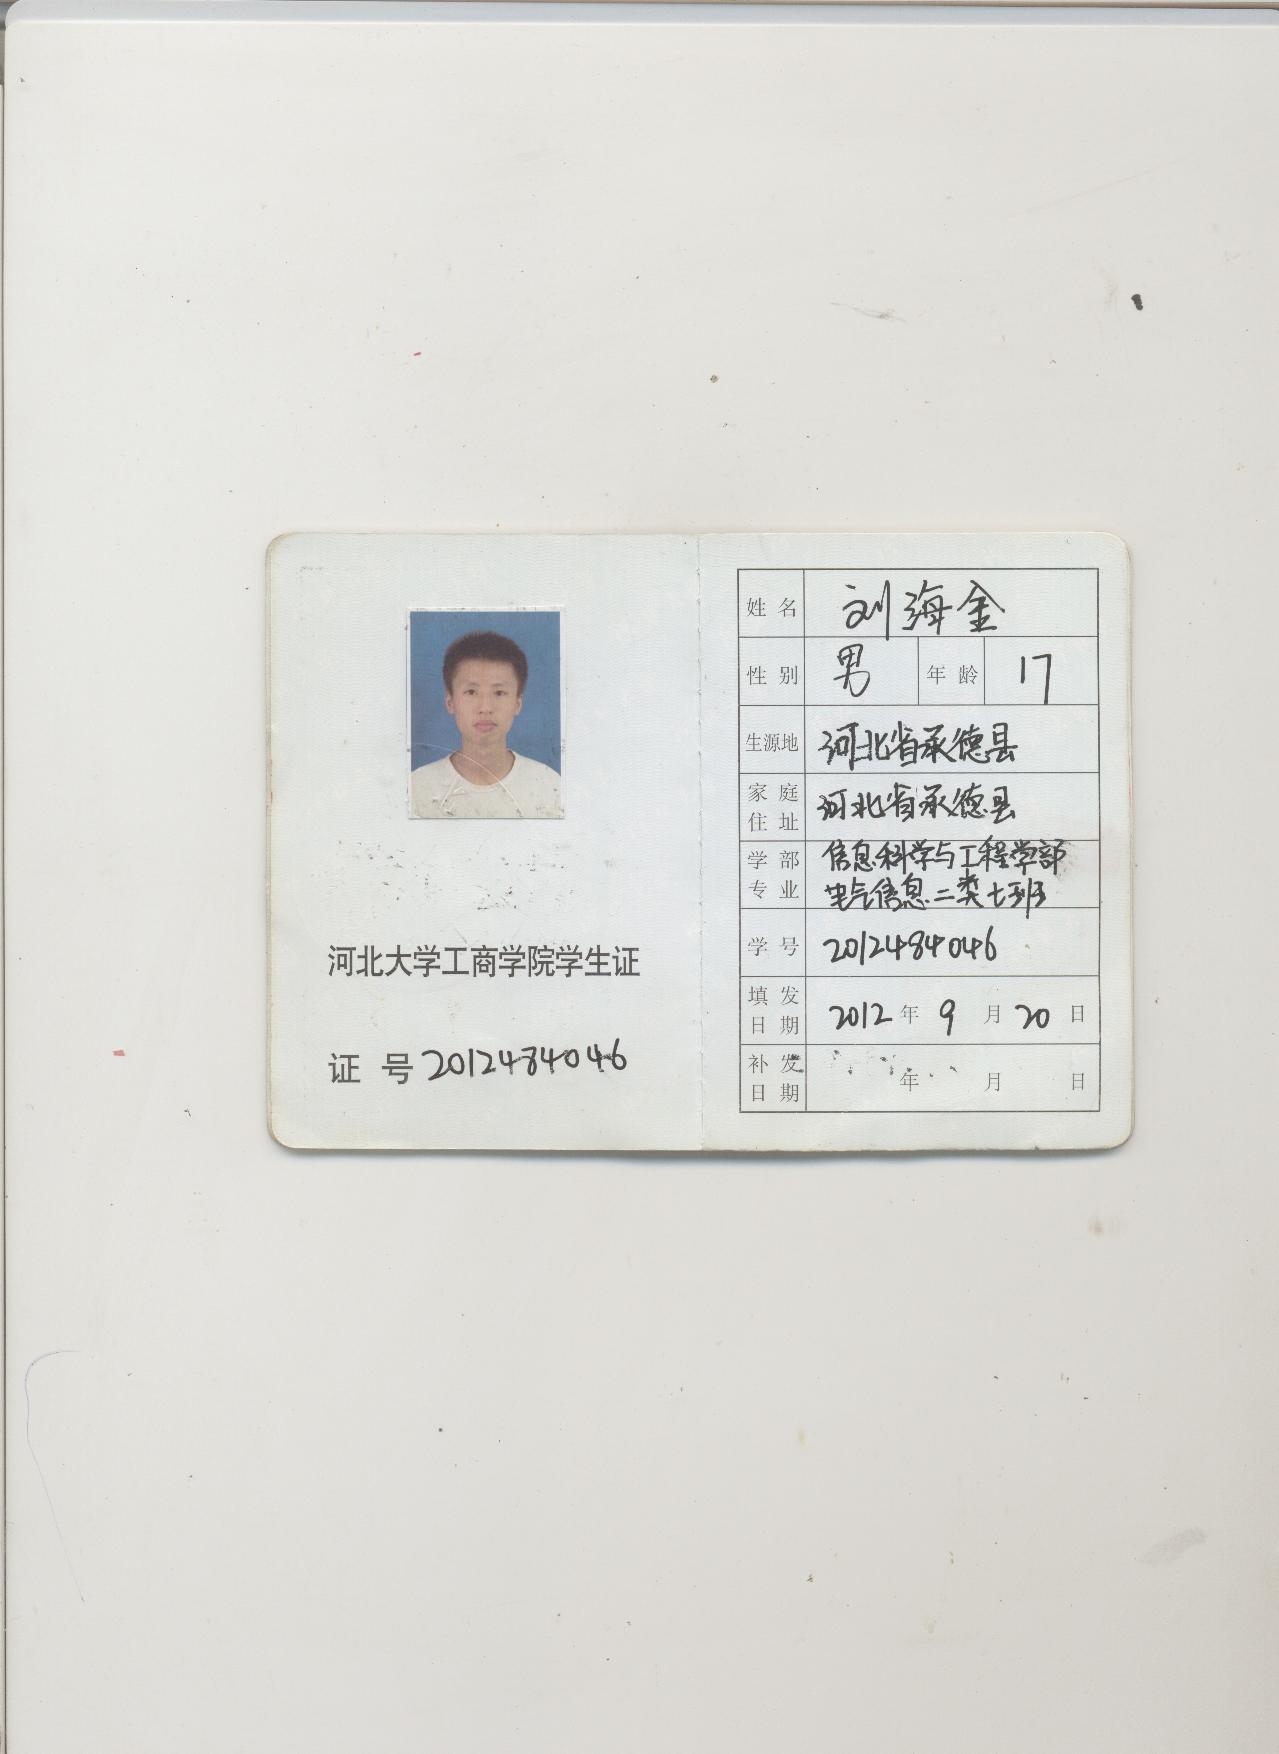 河北大学工商学院学生证
证 号 2012484046
姓 名 刘海金
性 别 男 年 龄 17
生源地 河北省承德县
家 庭 住 址 河北省承德县
学 部 专 业 信息科学与工程学部
电气信息二类七班
学 号 2012484046
填 发 日 期 2012 年 9 月 20 日
补 发 日 期 年 月 日